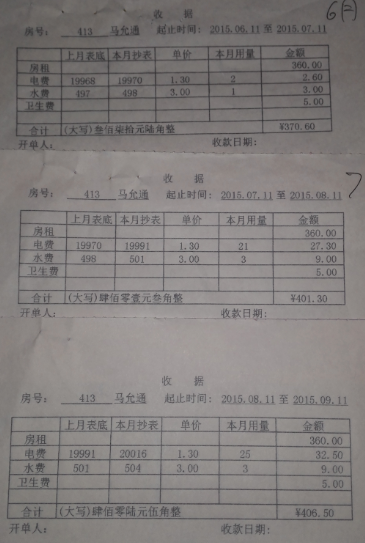 收 据 6(二)
房号: 413 马允通 起止时间: 2015.06.11 至 2015.07.11
上月表底 本月抄表 单价 本月用量 金额
房租 360.00
电费 19968 19970 1.30 2 2.60
水费 497 498 3.00 1 3.00
卫生费 5.00
合计 (大写)叁佰柒拾元陆角整 ¥370.60
开单人: 收款日期:
收 据 7
房号: 413 马允通 起止时间: 2015.07.11 至 2015.08.11
上月表底 本月抄表 单价 本月用量 金额
房租 360.00
电费 19970 19991 1.30 21 27.30
水费 498 501 3.00 3 9.00
卫生费 5.00
合计 (大写)肆佰零壹元叁角整 ¥401.30
开单人: 收款日期:
收 据
房号: 413 马允通 起止时间: 2015.08.11 至 2015.09.11
上月表底 本月抄表 单价 本月用量 金额
房租 360.00
电费 19991 20016 1.30 25 32.50
水费 501 504 3.00 3 9.00
卫生费 5.00
合计 (大写)肆佰零陆元伍角整 ¥406.50
开单人: 收款日期: